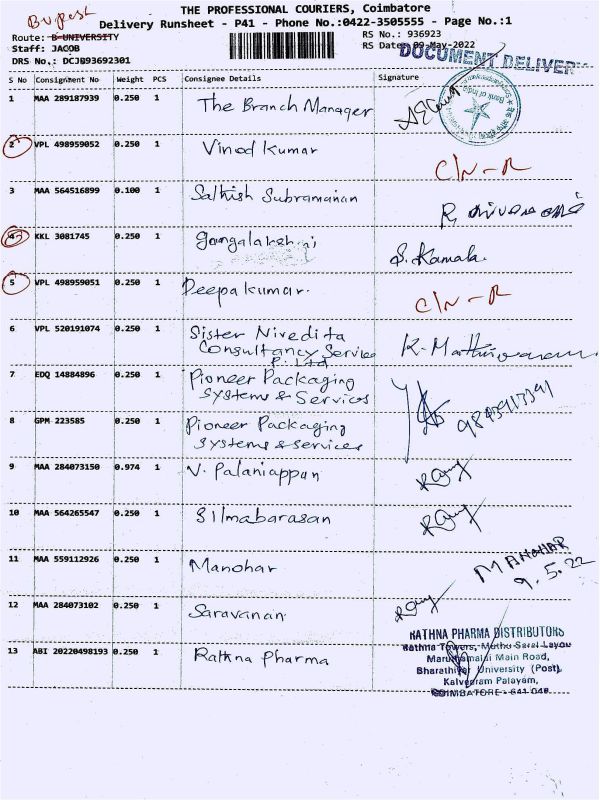 THE PROFESSIONAL COURIERS, Coimbatore
Delivery Runsheet - P41 - Phone No.:0422-3505555 - Page No.:1
Route: B-UNIVERSITY
RS No.: 936923
Staff: JACOB
RS Date: 09-May-2022
DRS No.: DCJB93692301
DOCUMENT DELIVER
S No Consignment No Weight PCS Consignee Details Signature
1 MAA 289187939 0.250 1 The Branch Manager
Bank of India
2 VPL 498959052 0.250 1 Vinod Kumar C/N-R
3 MAA 564516899 0.100 1 Sathish Subramanian
4 KKL 3081745 0.250 1 S. Kamala
5 VPL 498959051 0.250 1 Deepakumar. C/N-R
6 VPL 520191074 0.250 1 Sister Nivedita
Consultancy Service
P. Ltd
7 EDQ 14884896 0.250 1 Pioneer Packaging
Systems & Services
8 GPM 223585 0.250 1 Pioneer Packaging
Systems & services
9 MAA 284073150 0.974 1 V. Palaniappan
10 MAA 564265547 0.250 1 Silmabarasan
11 MAA 559112926 0.250 1 Manohar MANOHAR
9.5.22
12 MAA 284073102 0.250 1 Saravanan
13 ABI 20220498193 0.250 1 Rathna Pharma
RATHNA PHARMA DISTRIBUTORS
Rathna Towers, Muthu Saral Layou
Maruthamalai Main Road,
Bharathiar University (Post),
Kalveeram Palayam,
COIMBATORE - 641 046